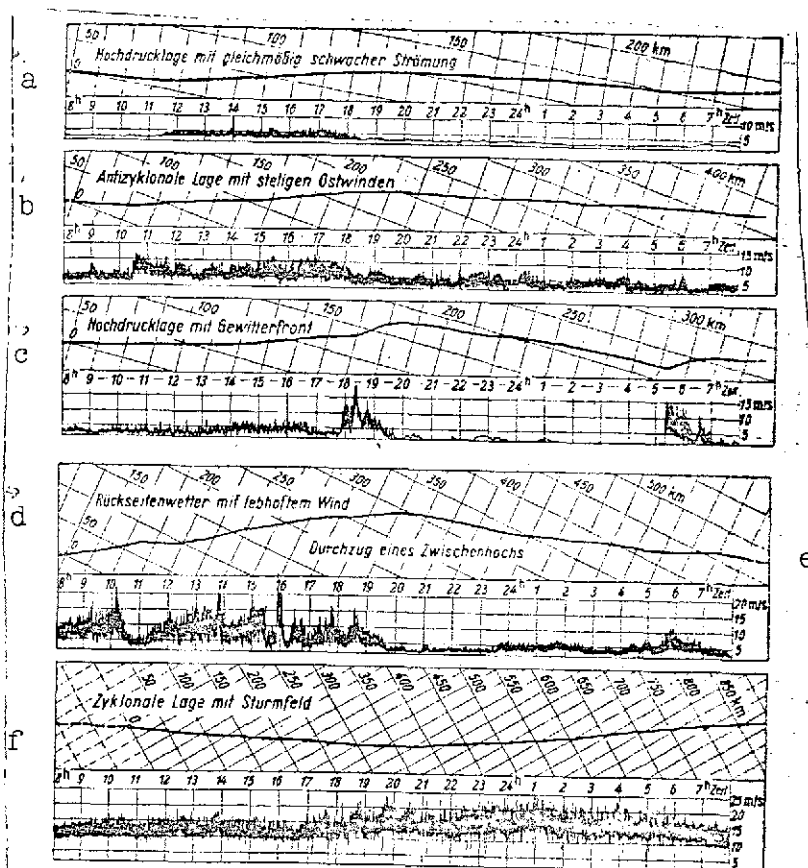 a
50 100 150 200 km
Hochdrucklage mit gleichmäßig schwacher Strömung
0
8ʰ 9 10 11 12 13 14 15 16 17 18 19 20 21 22 23 24ʰ 1 2 3 4 5 6 7ʰ Zeit
10 m/s
5
b
50 100 150 200 250 300 350 400 km
Antizyklonale Lage mit stetigen Ostwinden
0
8ʰ 9 10 11 12 13 14 15 16 17 18 19 20 21 22 23 24ʰ 1 2 3 4 5 6 7ʰ Zeit
15 m/s
10
5
c
50 100 150 200 250 300 km
Hochdrucklage mit Gewitterfront
0
8ʰ 9 - 10 - 11 - 12 - 13 - 14 - 15 - 16 - 17 - 18 - 19 - 20 - 21 - 22 - 23 - 24ʰ 1 - 2 - 3 - 4 - 5 - 6 - 7ʰ Zeit
15 m/s
10
5
d
50 150 200 250 300 350 400 450 500 km
Rückseitenwetter mit lebhaftem Wind
Durchzug eines Zwischenhochs
e
0
8ʰ 9 10 11 12 13 14 15 16 17 18 19 20 21 22 23 24ʰ 1 2 3 4 5 6 7ʰ Zeit
20 m/s
15
10
5
f
50 100 150 200 250 300 350 400 450 500 550 600 650 700 750 800 850 km
Zyklonale Lage mit Sturmfeld
0
8ʰ 9 10 11 12 13 14 15 16 17 18 19 20 21 22 23 24ʰ 1 2 3 4 5 6 7ʰ Zeit
25 m/s
20
15
10
5